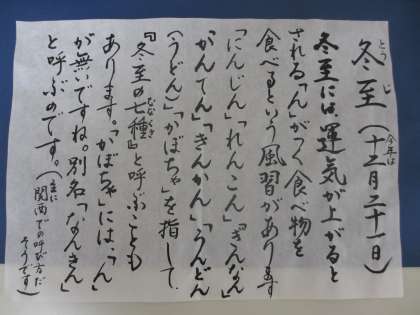 冬至(今年は十二月二十一日)
とうじ
冬至には、運気が上がると
される「ん」がつく食べ物を
食べるという風習があります
「にんじん」「れんこん」「ぎんなん」
「かんてん」「きんかん」「うんどん
(うどん)」「かぼちゃ」を指して、
『冬至の七種』と呼ぶことも
ななくさ
あります。「かぼちゃ」には、「ん」
が無いですね。別名「なんきん」
と呼ぶのです。(主に
関西での呼び方だ
そうです)